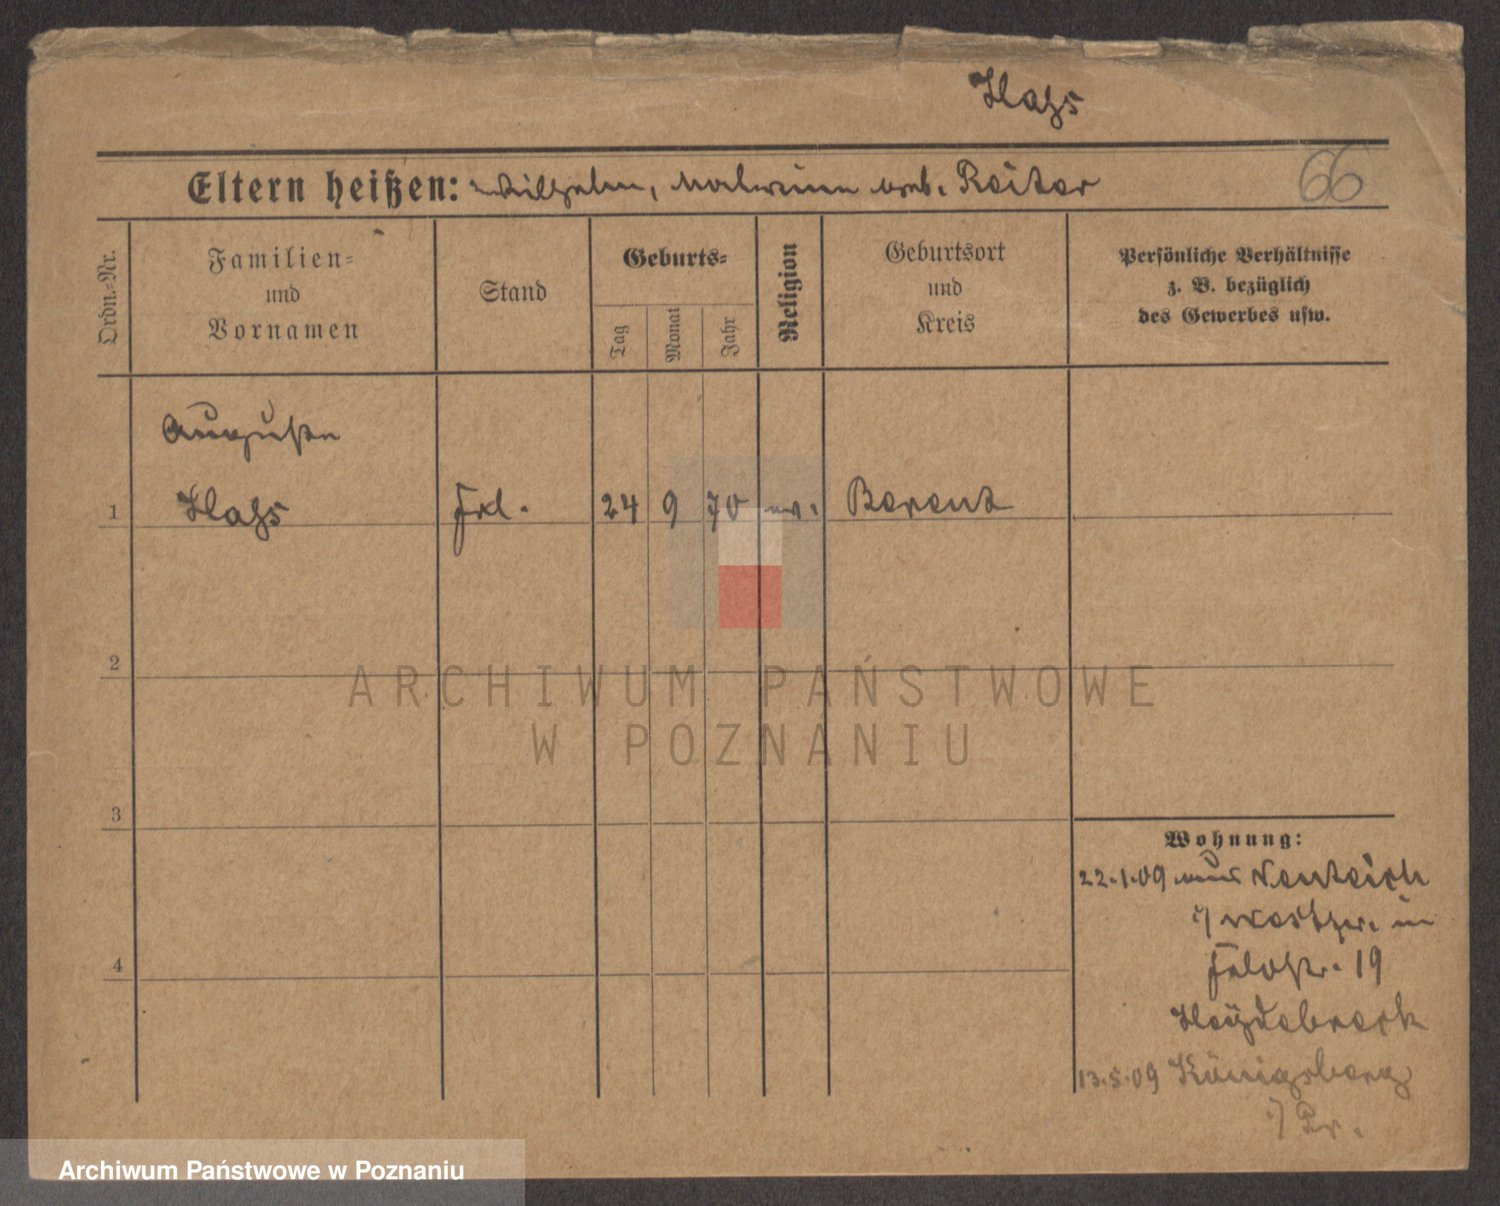 Hahs
Eltern heißen: Wilhelm, Malwine geb. Reiter
66
Ordn.-Nr.
Familien-
und
Vornamen
Stand
Geburts-
Tag
Monat
Jahr
Religion
Geburtsort
und
Kreis
Persönliche Verhältnisse
z. B. bezüglich
des Gewerbes usw.
Auguste
1 Hahs Frl. 24 9 70 ev. Berent
2
3
4
Wohnung:
22.1.09 aus Neuteich
i/ Westpr. in
Feldstr. 19
Heydebreck
13.5.09 Königsberg
i/ Pr.
ARCHIWUM PAŃSTWOWE
W POZNANIU
Archiwum Państwowe w Poznaniu